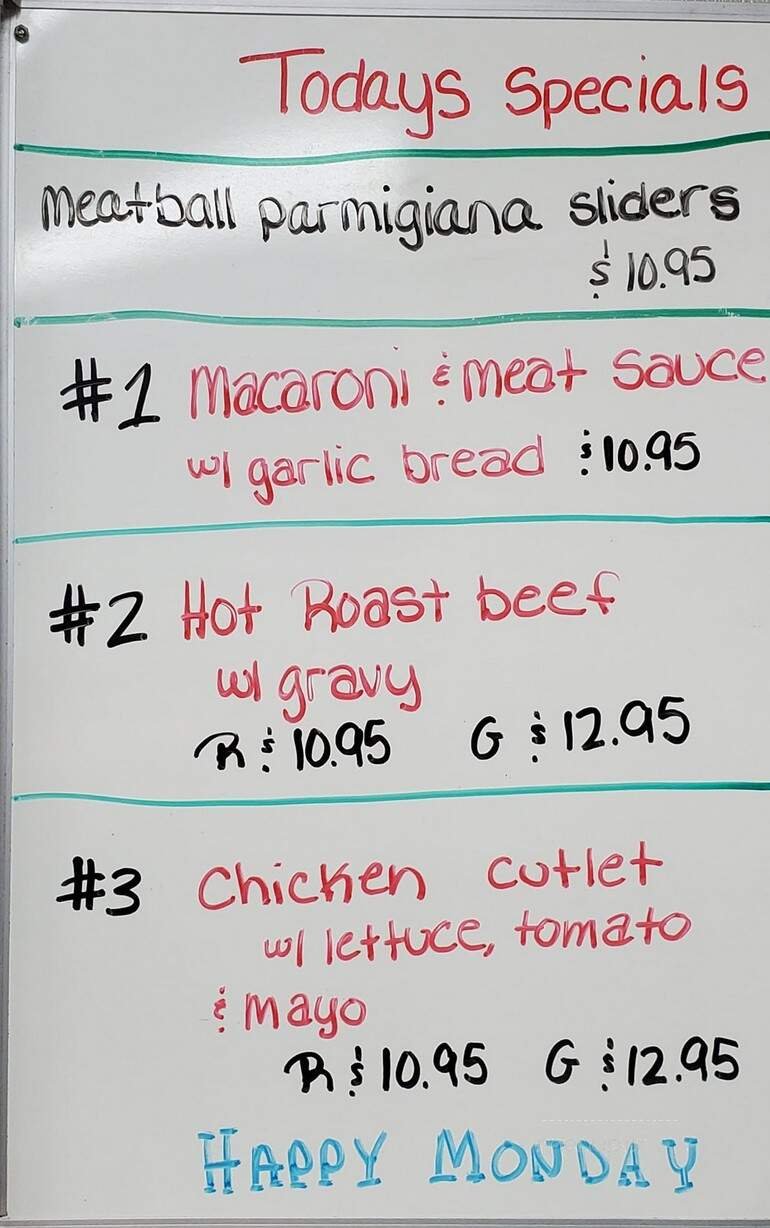 Todays specials
Meatball parmigiana sliders
$10.95
#1 Macaroni & meat sauce
w/ garlic bread $10.95
#2 Hot Roast beef
w/ gravy
R $10.95 G $12.95
#3 Chicken cutlet
w/ lettuce, tomato
& mayo
R $10.95 G $12.95
HAPPY MONDAY